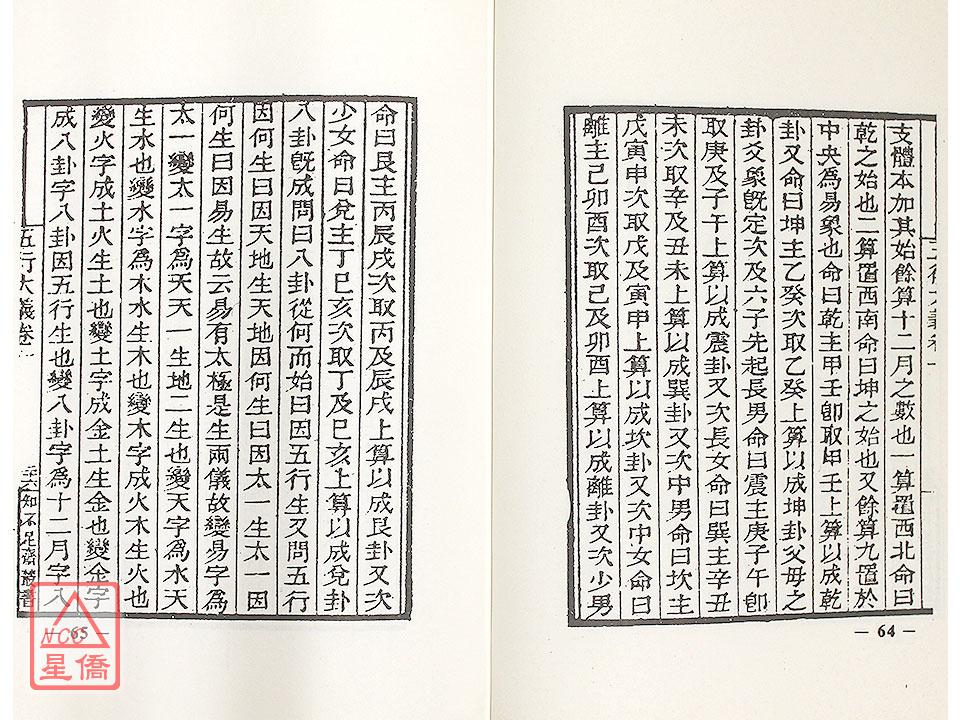 支體本加其始餘算十二月之數也一算置西北命曰
乾之始也二算置西南命曰坤之始也又餘算九置於
中央為易象也命曰乾主甲壬卽取甲壬上算以成乾
卦又命曰坤主乙癸次取乙癸上算以成坤卦父母之
卦爻象旣定次及六子先起長男命曰震主庚子午卽
取庚及子午上算以成震卦又次長女命曰巽主辛丑
未次取辛及丑未上算以成巽卦又次中男命曰坎主
戊寅申次取戊及寅申上算以成坎卦又次中女命曰
離主己卯酉次取己及卯酉上算以成離卦又次少男
— 64 —
命曰艮主丙辰戌次取丙及辰戌上算以成艮卦又次
少女命曰兌主丁巳亥次取丁及巳亥上算以成兌卦
八卦旣成問曰八卦從何而始曰因五行生又問五行
因何生曰因天地生天地因何生曰因太一生太一因
何生曰因易生故云易有太極是生兩儀故變易字為
太一變太一字為天天一生地二生也變天字為水天
生水也變水字為木水生木也變木字成火木生火也
變火字成土火生土也變土字成金土生金也變金字
成八卦字八卦因五行生也變八卦字為十二月字八
五行大義卷
知不足齋叢書
— 65 —
NCC
星僑